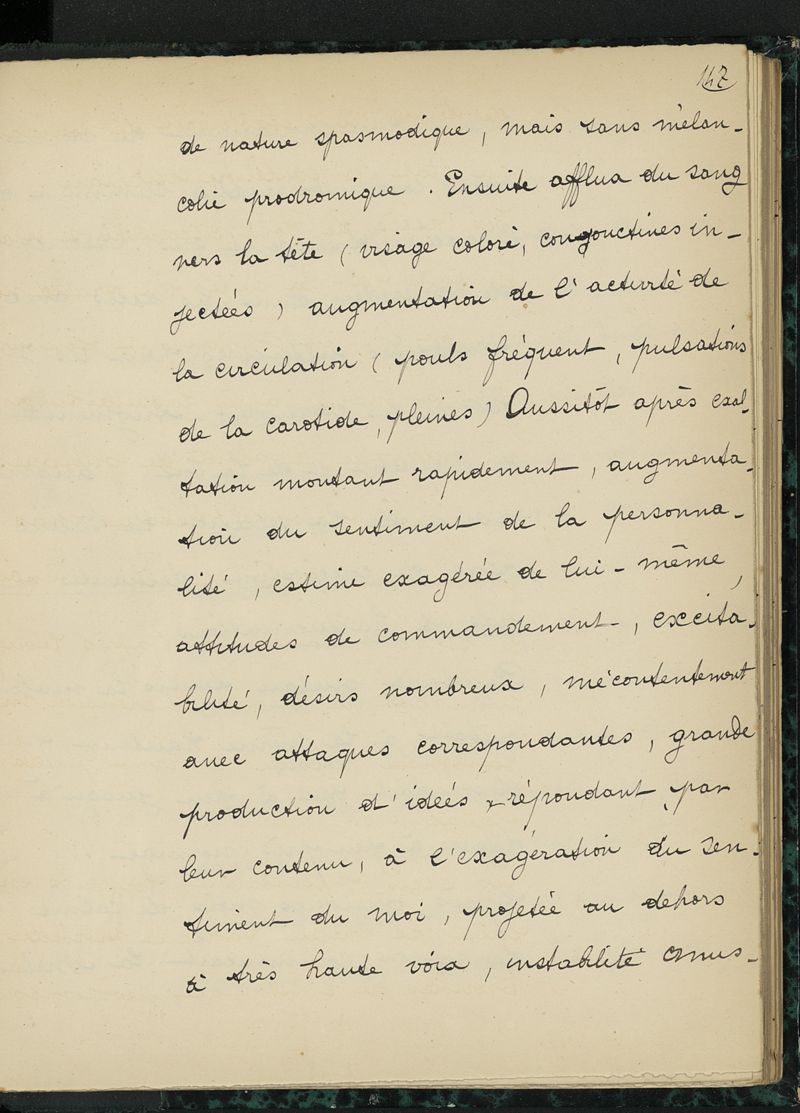 147
de nature spasmodique, mais sans mélan-
colie prodromique. Ensuite afflua du sang
vers la tête (visage coloré, congonctives in-
jectées) augmentation de l'activité de
la circulation (pouls fréquent, pulsations
de la carotide, pleines) Aussitôt après exal-
tation montant rapidement, augmenta-
tion du sentiment de la personna-
lité, estime exagérée de lui-même,
attitudes de commandement, excita-
bilité, désirs nombreux, mécontentement
avec attaques correspondantes, grande
production d'ideés, répondant, par
leur contenu, à l'exagération du sen-
timent du moi, projetée au dehors
à très haute voix, instabilité mus-